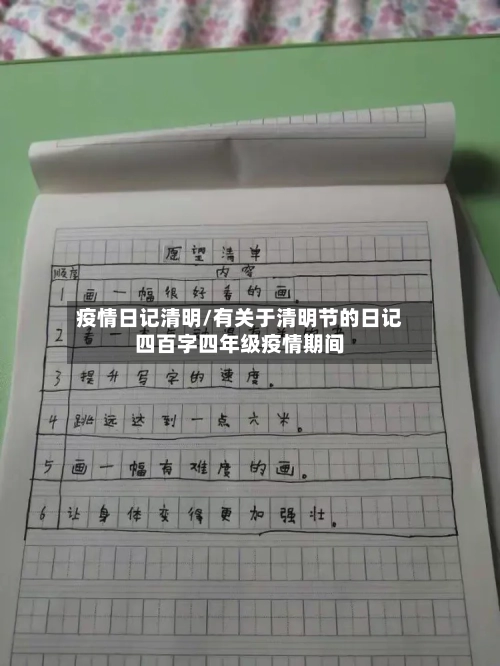 愿望清单
顺序 内容
1 画一幅很好看的画。
疫情日记清明/有关于清明节的日记
四百字四年级疫情期间
2 看一
3 提升写字的速度。
4 跳远达到一点六米。
5 画一幅有难度的画。
6 让身体变得更加强壮。